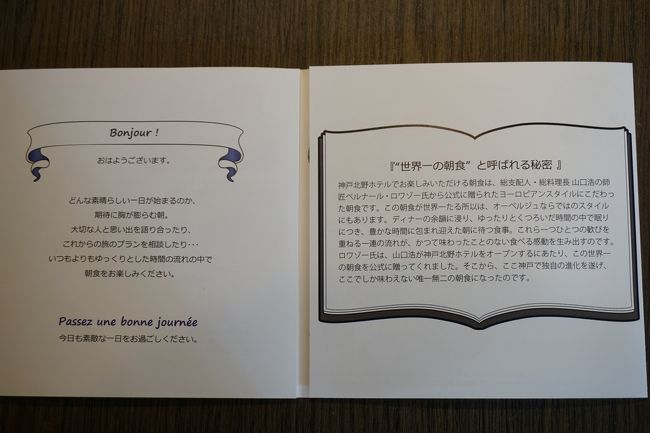 Bonjour !
おはようございます。
どんな素晴らしい一日が始まるのか、
期待に胸が膨らむ朝。
大切な人と思い出を語り合ったり、
これからの旅のプランを相談したり・・・
いつもよりもゆっくりとした時間の流れの中で
朝食をお楽しみください。
Passez une bonne journée
今日も素敵な一日をお過ごしください。
『“世界一の朝食” と呼ばれる秘密 』
神戸北野ホテルでお楽しみいただける朝食は、総支配人・総料理長 山口浩の師
匠ベルナール・ロワゾー氏から公式に贈られたヨーロピアンスタイルにこだわっ
た朝食です。この朝食が世界一たる所以は、オーベルジュならではのスタイル
にもあります。ディナーの余韻に浸り、ゆったりとくつろいだ時間の中で眠り
につき、豊かな時間に包まれ迎えた朝に待つ食事。これら一つひとつの歓びを
重ねる一連の流れが、かつて味わったことのない食べる感動を生み出すのです。
ロワゾー氏は、山口浩が神戸北野ホテルをオープンするにあたり、この世界一
の朝食を公式に贈ってくれました。そこから、ここ神戸で独自の進化を遂げ、
ここでしか味わえない唯一無二の朝食になったのです。